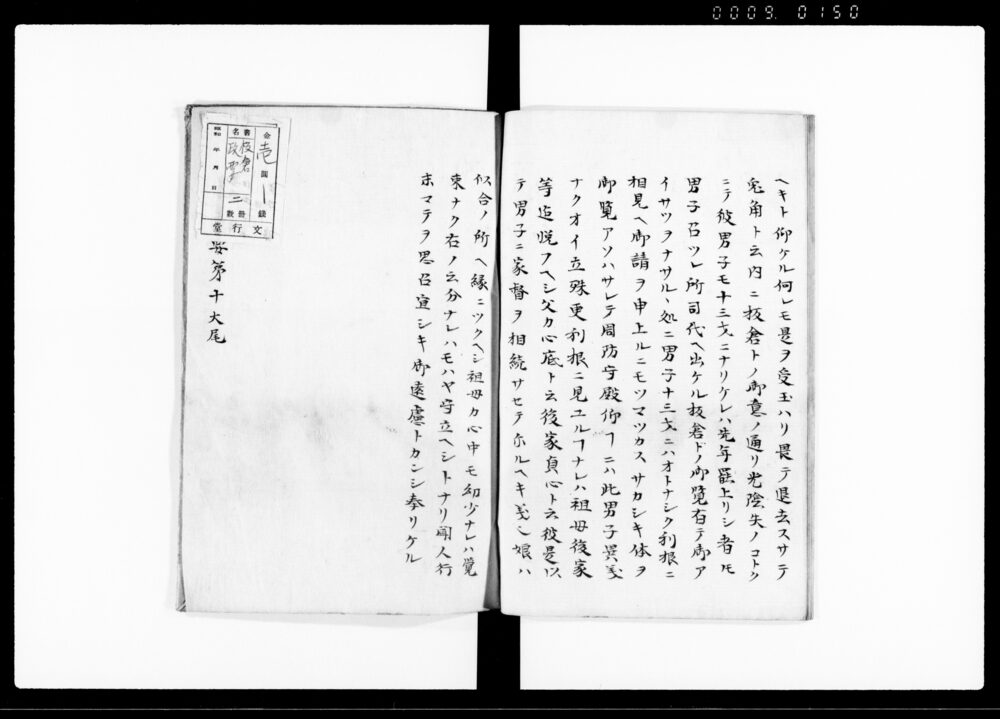 0009. 0150
ヘキト仰ケル何レモ是ヲ受玉ハリ畏テ退去スサテ
兎角ト云内ニ板倉トノ御意ノ通リ光陰矢ノコトク
ニテ彼男子モ十三才ニナリケレハ先年罷上リシ者𪜈
男子召ツレ所司代ヘ出ケル板倉ドノ御覧有テ御ア
イサツヲナサルヽ処ニ男子十三才ニハオトナシク利根ニ
相見ヘ御請ヲ申上ルニモツマツカス サカシキ体ヲ
御覧アソハサレテ周防守殿仰ヿニハ此男子異義
ナクオイ立殊更利根ニ見ユルヿナレハ祖母後家
等造悦フヘシ父カ心底ト云後家貞心ト云彼是以
テ男子ニ家督ヲ相続サセテ尓ルヘキ義也娘ハ
似合ノ所ヘ縁ニツクヘシ祖母カ心中モ幼少ナレハ覚
束ナク右ノ云分ナレハモハヤ守立ヘシトナリ聞人行
末マテヲ思召宣シキ御遠慮トカンシ奉リケル
要第十大尾
金 壱 圓 ー 錢
書名 板倉政要
冊数 二
昭和 年 月 日
文行堂